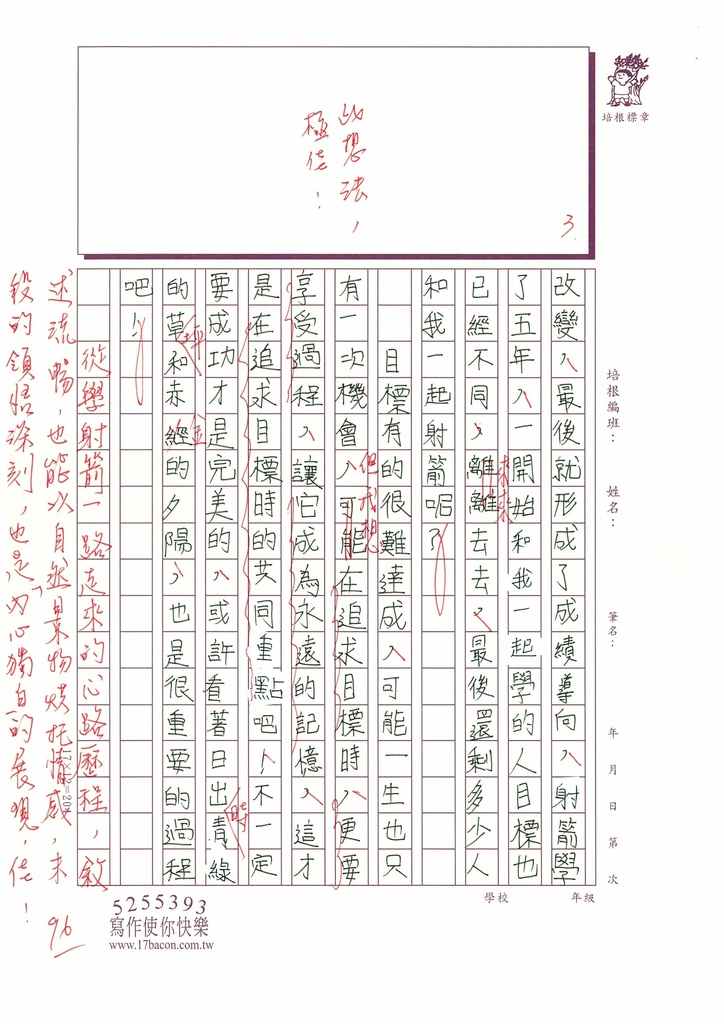 此想法，
極佳！
3
培根標章
培根編班：
姓名：
筆名：
年 月 日 第 次
學校
年級
改變，最後就形成了成績導向，射箭學
了五年，一開始和我一起學的人目標也
已經不同，離離去去，最後還剩多少人
來來
和我一起射箭呢？
目標有的很難達成，可能一生也只
有一次機會，可能在追求目標時，更要
但我想
享受過程，讓它成為永遠的記憶，這才
是在追求目標時的共同重點吧！不一定
要成功才是完美的，或許看著日出青綠
時
的草和赤經的夕陽，也是很重要的過程
坪
金
吧！
從學射箭一路走來的心路歷程，敘
述流暢，也能以自然景物烘托情感，末
段的領悟深刻，也是內心獨白的展現，佳！
96
17×12=204
5255393
寫作使你快樂
www.17bacon.com.tw